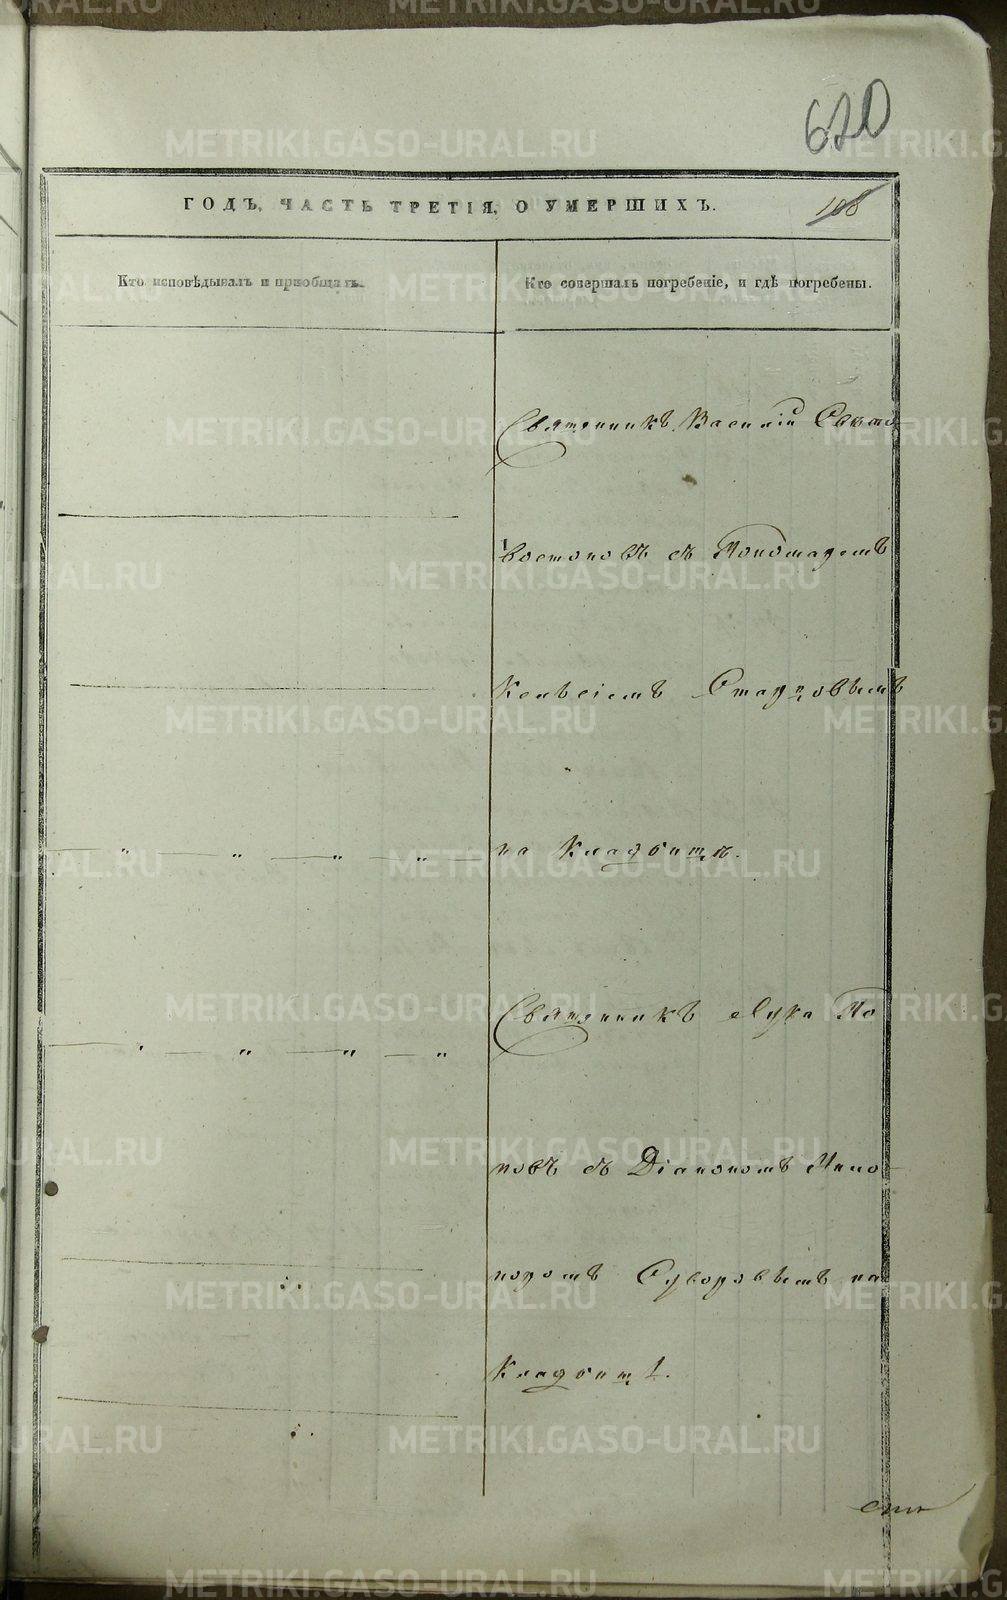 620
ГОДЪ, ЧАСТЬ ТРЕТІЯ, О УМЕРШИХЪ.
108
Кто исповѣдывалъ и пріобщалъ.
Кто совершалъ погребеніе, и гдѣ погребены.
Священникъ Василій Свѣто
востоковъ съ Пономаремъ
Кельсіемъ Старцовымъ
на Кладбищѣ.
Священникъ Лука По
повъ съ Діакономъ Нико
норомъ Суворовымъ на
Кладбищѣ.
METRIKI.GASO-URAL.RU